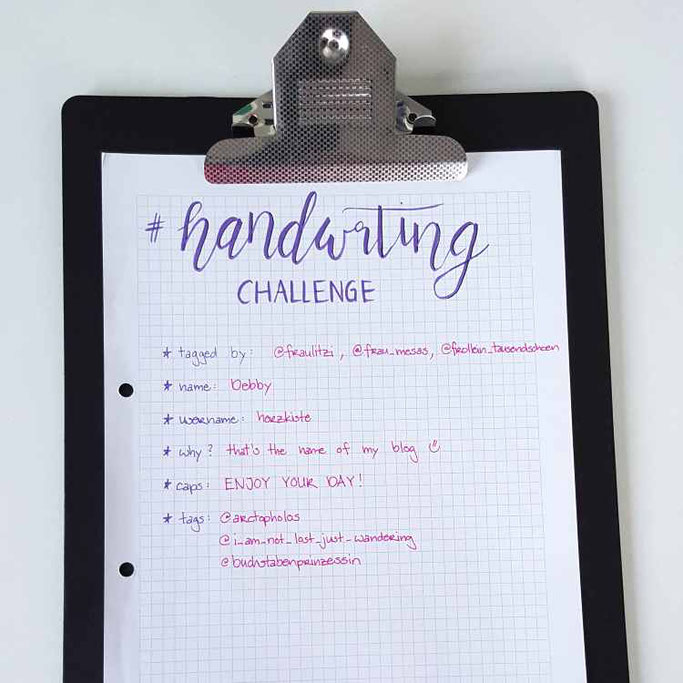 # handwriting
CHALLENGE
* tagged by: @fraulitzi, @frau_mesas, @frollein_tausendschoen
* name: Debby
* username: herzkiste
* why? that's the name of my blog ☺
* caps: ENJOY YOUR DAY!
* tags: @arctopholos
@i_am_not_lost_just_wandering
@buchstabenprinzessin